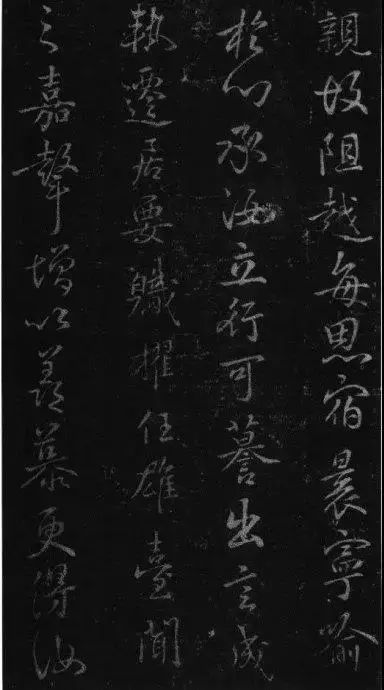 親故阻越每思宿晨寧喻
於心承汝立行可蹇出言成
執遷居要職擢任雄臺聞
之嘉聲增以羨慕更得汝